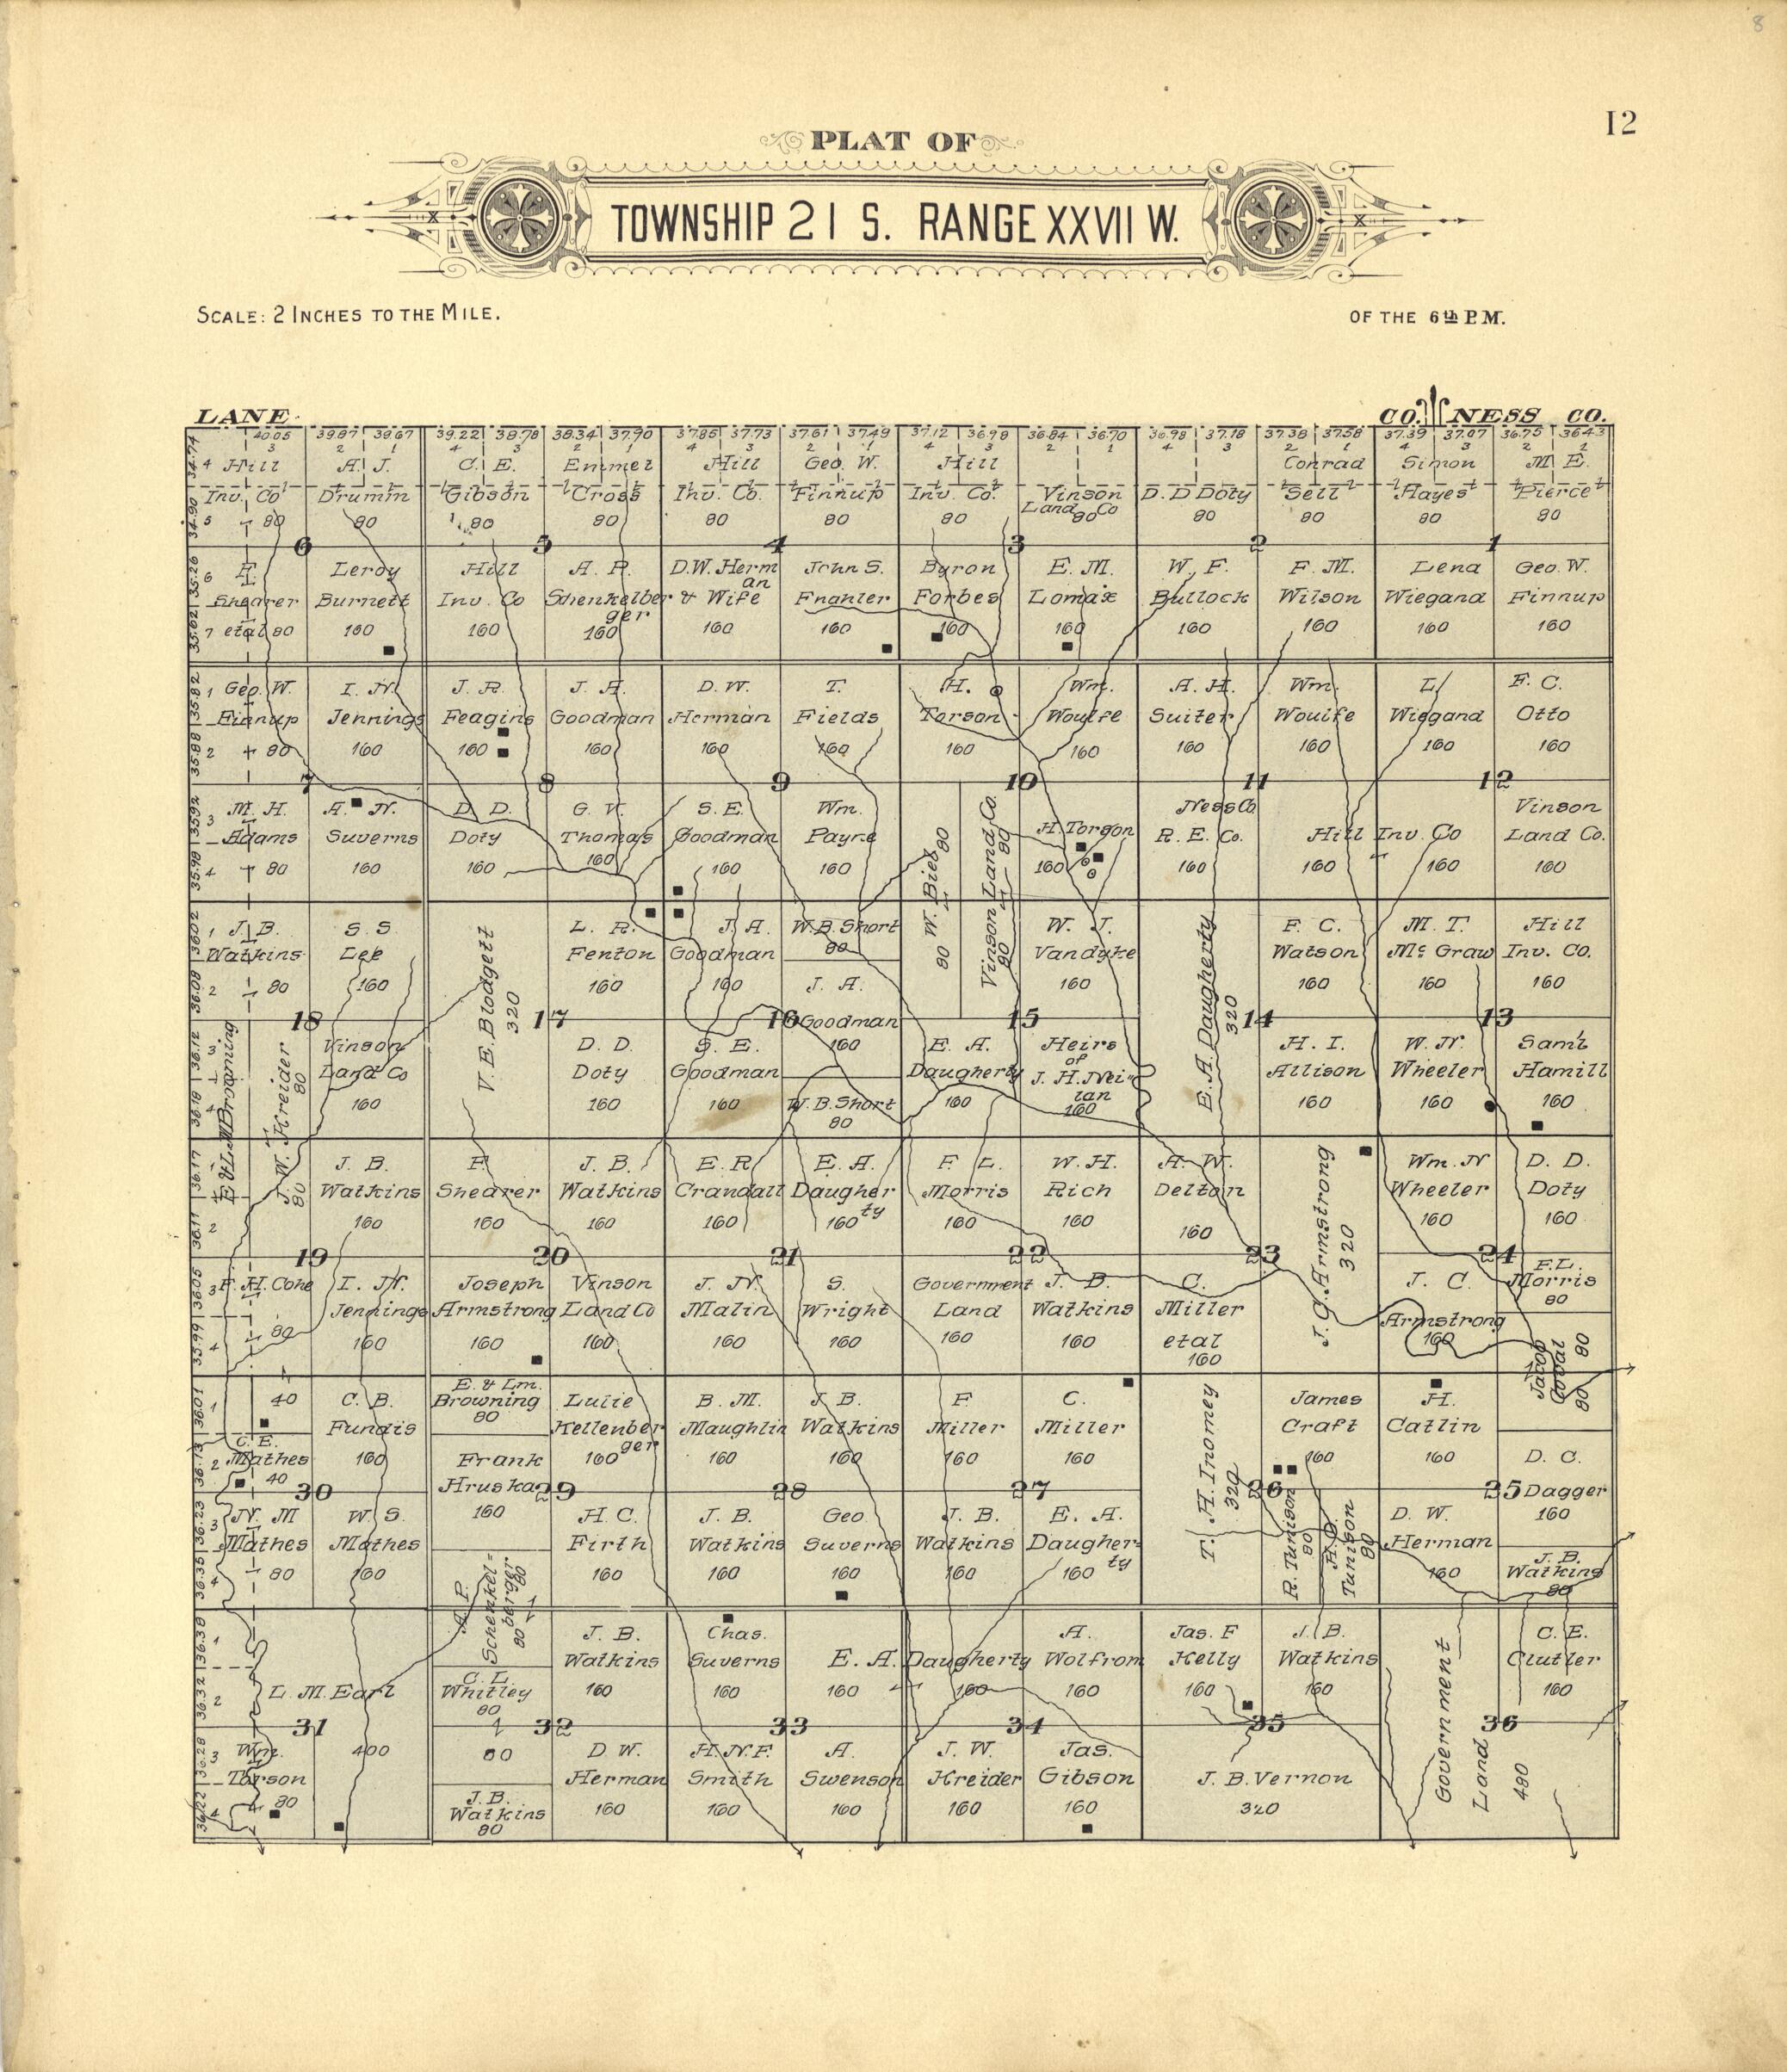 8
12
PLAT OF
TOWNSHIP 21 S. RANGE XXVII W.
SCALE: 2 INCHES TO THE MILE.
OF THE 6th P.M.
LANE CO. NESS CO.
40.05 39.87 39.67 39.22 38.78 38.34 37.90 37.85 37.73 37.61 37.49 37.12 36.98 36.84 36.70 36.98 37.18 37.38 37.58 37.39 37.07 36.75 36.43
3 2 1 4 3 2 1 4 3 2 1 4 3 2 1 4 3 2 1 4 3 2 1
4 Hill A. J. C. E. Emmel Hill Geo. W. Hill Conrad Simon M E.
Inv. Co Drumm Gibson Cross Inv. Co. Finnup Inv. Co. Vinson D. D Doty Sell Hayes Pierce
Land Co
5 80 80 80 80 80 80 80 80 80 80 80 80
6 5 4 3 2 1
6 F. Leroy Hill A. P. D.W. Herm John S. Byron E. M. W. F. F. M. Lena Geo. W.
an
Shearer Burnett Inv. Co Schenkelber & Wife Fnahler Forbes Lomax Bullock Wilson Wiegand Finnup
ger
7 etal 80 160 160 160 160 160 160 160 160 160 160 160
1 Geo. W. I. N. J. R. J. A. D. W. T. H. Wm. A. H. Wm. L. F. C.
Finnup Jennings Feagins Goodman Herman Fields Torson Woulfe Suiter Woulfe Wiegand Otto
2 80 160 160 160 160 160 160 160 160 160 160 160
7 8 9 10 11 12
3 M. H. A. N. D. D. G. V. S. E. Wm. Ness Co Vinson
Adams Suverns Doty Thomas Goodman Payne H. Torson R. E. Co. Hill Inv. Co Land Co.
4 80 160 160 160 160 160 160 160 160 160 160
W. Biel 80 80
Vinson Land Co. 80 80
1 J. B. S. S. L. R. J. A. W. B. Short W. J. F. C. M. T. Hill
80
Watkins Lee Fenton Goodman Vandyke Watson Mc Graw Inv. Co.
2 80 160 160 160 J. A. 160 160 160 160
V. E. Blodgett 320
E. A. Daugherty 320
18 17 16 Goodman 15 14 13
160
3 Vinson D. D. S. E. E. A. Heirs H. I. W. N. Saml
of
Land Co Doty Goodman Daugherty J. H. Nei-
lan Allison Wheeler Hamill
160 160 160 160 160 160 160 160
W. B. Short
80
E & L M Browning
J. W. Kreider
80 80
J. B. F. J. B. E. R E. A. F. L. W. H. A. W. Wm. N D. D.
Watkins Shearer Watkins Crandall Daugher
ty Morris Rich Delton Wheeler Doty
160 160 160 160 160 160 160 160 160 160
J. C. Armstrong 320
19 20 21 22 23 24
3 F. H. Cone I. N. Joseph Vinson J. N. S. Government J. B. C. J. C. F. L.
Jennings Armstrong Land Co Malin Wright Land Watkins Miller Armstrong Morris
80
4 80 160 160 160 160 160 160 160 etal
160 160
Jacob 80 80
1 40 C. B. E. & Lm. Lulie B. M. J. B. F. C. James H.
Fundis Browning Kellenber
ger Maughlin Watkins Miller Miller Craft Catlin
80
C. E.
2 Mathes 160 Frank 160 160 160 160 160 160 160 D. C.
40 Hruska Dagger
160 160
T. H. Inomey 320
30 29 28 27 26 25
3 N. M W. S. H. C. J. B. Geo J. B. E. A. D. W.
Mathes Mathes Firth Watkins Suverns Watkins Daugher-
ty Herman
4 80 160 160 160 160 160 160 160
R. Tunison 80
Tunison 80
J. B.
Watkins
80
A. P. Schenkel=
berger 80 80
1 J. B. Chas. A. Jas. F J. B. C. E.
Watkins Suverns E. A. Daugherty Wolfrom Kelly Watkins Clutler
2 L. M. Earl 160 160 160 160 160 160 160 160
400
C. L.
Whitley
80
80
Government Land 480
31 32 33 34 35 36
3 Wm. D W. H. N. F. A. J. W. Jas.
Torson Herman Smith Swenson Kreider Gibson J. B. Vernon
4 80 160 160 160 160 160 320
J. B.
Watkins
80
34.74
34.90
35.26
35.62
35.82
35.88
35.92
35.98
36.02
36.08
36.12
36.18
36.17
36.11
36.05
35.99
36.01
36.13
36.23
36.35
36.38
36.32
36.28
36.22